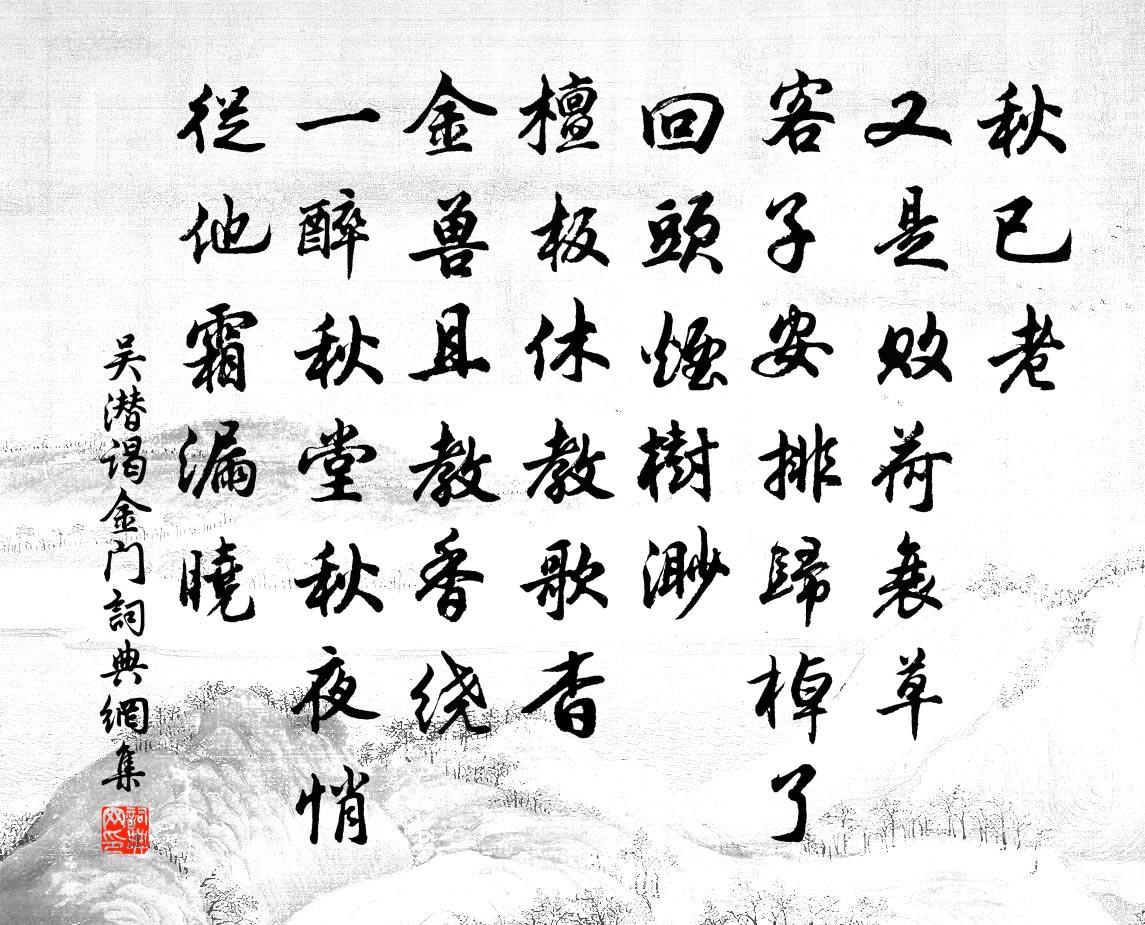 秋已老
又是败荷衰草
客子安排歸棹了
回頭煙樹渺
檀板休教歌杳
金兽且教香绕
一醉秋堂秋夜悄
從他霜漏曉
吴潜谒金门詞典網集
詞典网